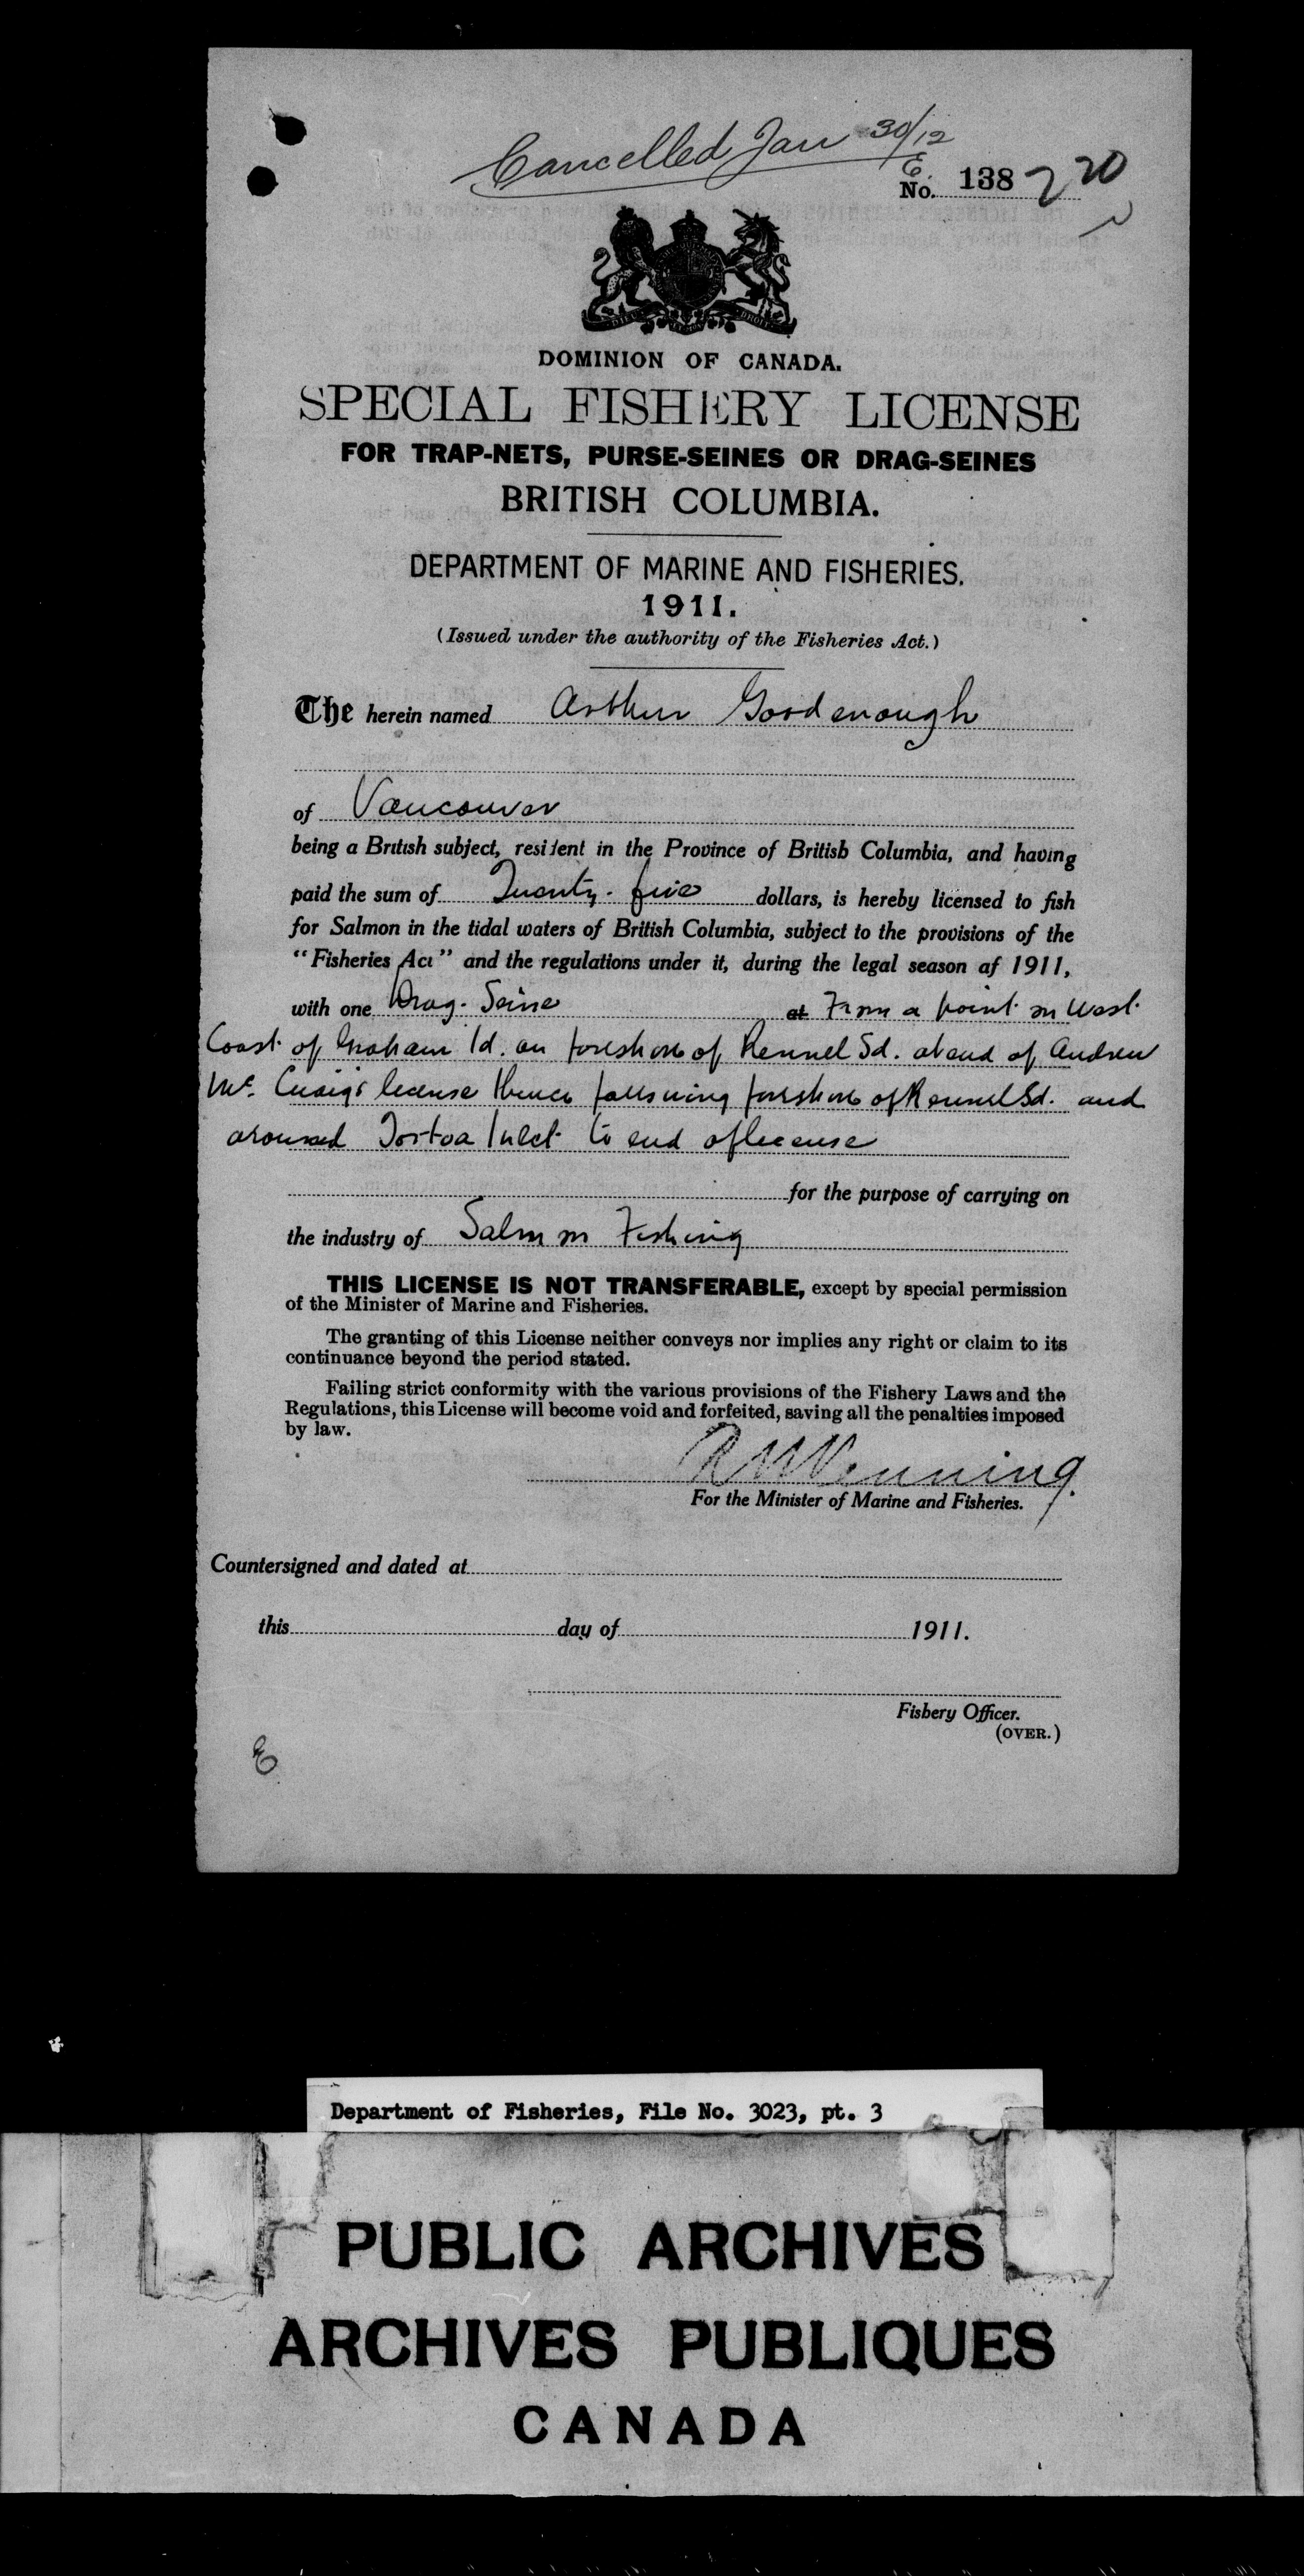 Cancelled Jan 30/12
E.
No. 138 220
DOMINION OF CANADA.
SPECIAL FISHERY LICENSE
FOR TRAP-NETS, PURSE-SEINES OR DRAG-SEINES
BRITISH COLUMBIA.
DEPARTMENT OF MARINE AND FISHERIES.
1911.
(Issued under the authority of the Fisheries Act.)
The herein named Arthur Goodenough
of Vancouver
being a British subject, resident in the Province of British Columbia, and having
paid the sum of Twenty-five dollars, is hereby licensed to fish
for Salmon in the tidal waters of British Columbia, subject to the provisions of the
"Fisheries Act" and the regulations under it, during the legal season af 1911,
with one Drag-Seine at From a point on West
Coast of Graham Id. on foreshore of Rennel Sd. at end of Andrew
Mc license thence following foreshore of Rennel Sd. and
around Inlet to end of license
for the purpose of carrying on
the industry of Salmon Fishing
THIS LICENSE IS NOT TRANSFERABLE, except by special permission
of the Minister of Marine and Fisheries.
The granting of this License neither conveys nor implies any right or claim to its
continuance beyond the period stated.
Failing strict conformity with the various provisions of the Fishery Laws and the
Regulations, this License will become void and forfeited, saving all the penalties imposed
by law.
Venning.
For the Minister of Marine and Fisheries.
Countersigned and dated at
this day of 1911.
Fishery Officer.
(OVER.)
E
Department of Fisheries, File No. 3023, pt. 3
PUBLIC ARCHIVES
ARCHIVES PUBLIQUES
CANADA